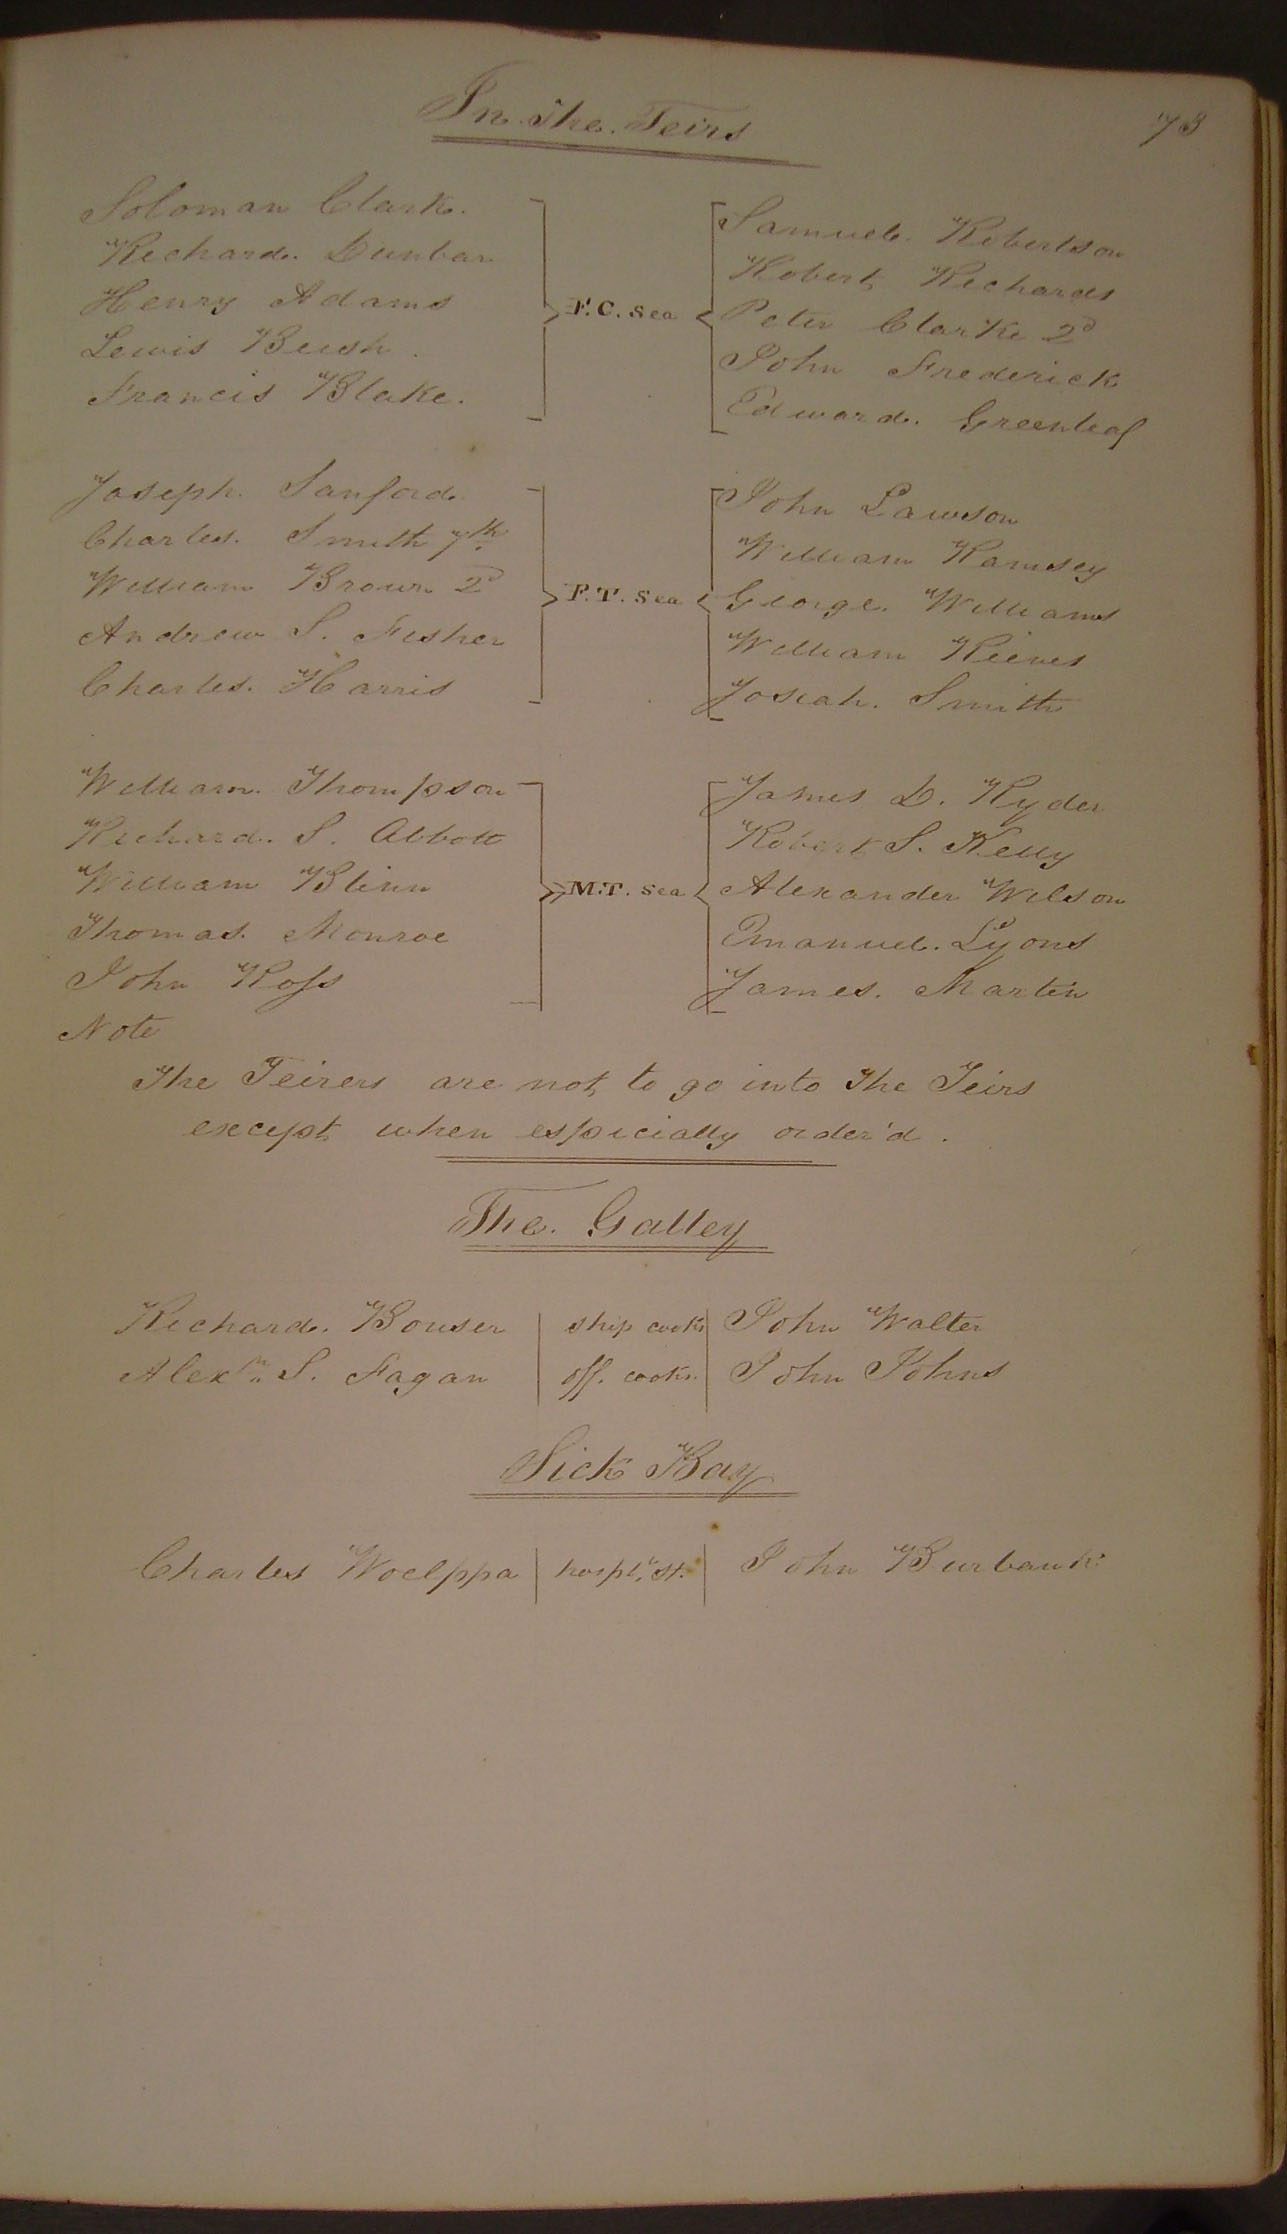 73
In the Teirs
Soloman Clark. Samuel. Robertson
Richard. Dunbar Robert Richards
Henry Adams F.C. Sea Peter Clarke 2d
Lewis Beush. John Frederick
Francis Blake. Edward. Greenleaf
Joseph. Sanford. John Lawson
Charles. Smith 7th. William Ramsey
William Brown 2d F.T. Sea George. Williams
Andrew S. Fisher William Rieves
Charles. Harris Josiah. Smith
William. Thompson James D. Ryder
Richard. S. Abbott Robert S. Kelly
William Blinn M.T. Sea Alexander Wilson
Thomas. Monroe Emanuel. Lyons
John Ross James. Martin
Note
The Teirers are not to go into the Teirs
except when espicially order'd.
The. Galley
Richard. Bouser ship cook John Walter
Alexr. S. Fagan off. cook. John Johns
Sick Bay
Charles Woelppa hospl. St. John Burbank